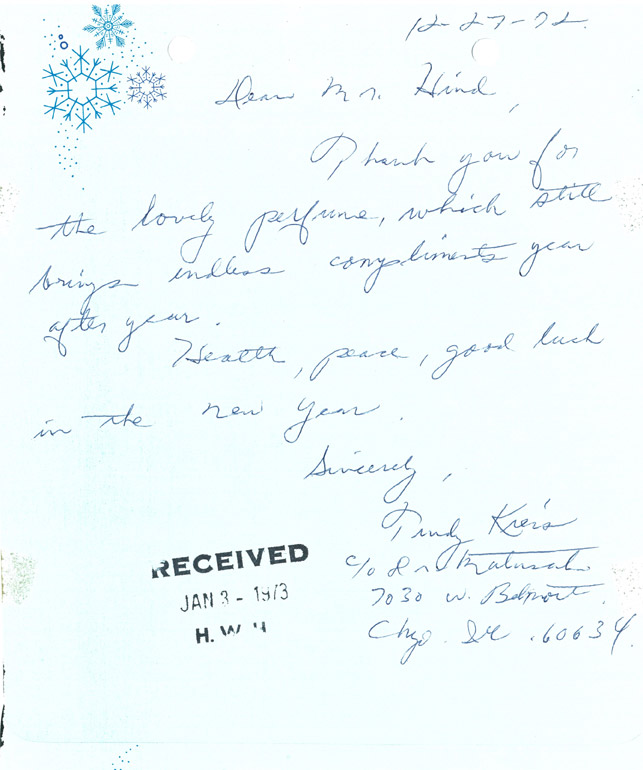 12-27-72.
Dear Mr. Hind,
Thank you for
the lovely perfume, which still
brings endless compliments year
after year.
Health, peace, good luck
in the new year.
Sincerely,
Trudy Kreis
c/o Dr.
7030 W. Belmont.
Chgo. Ill. 60634.
RECEIVED
JAN 3 - 1973
H. W. H